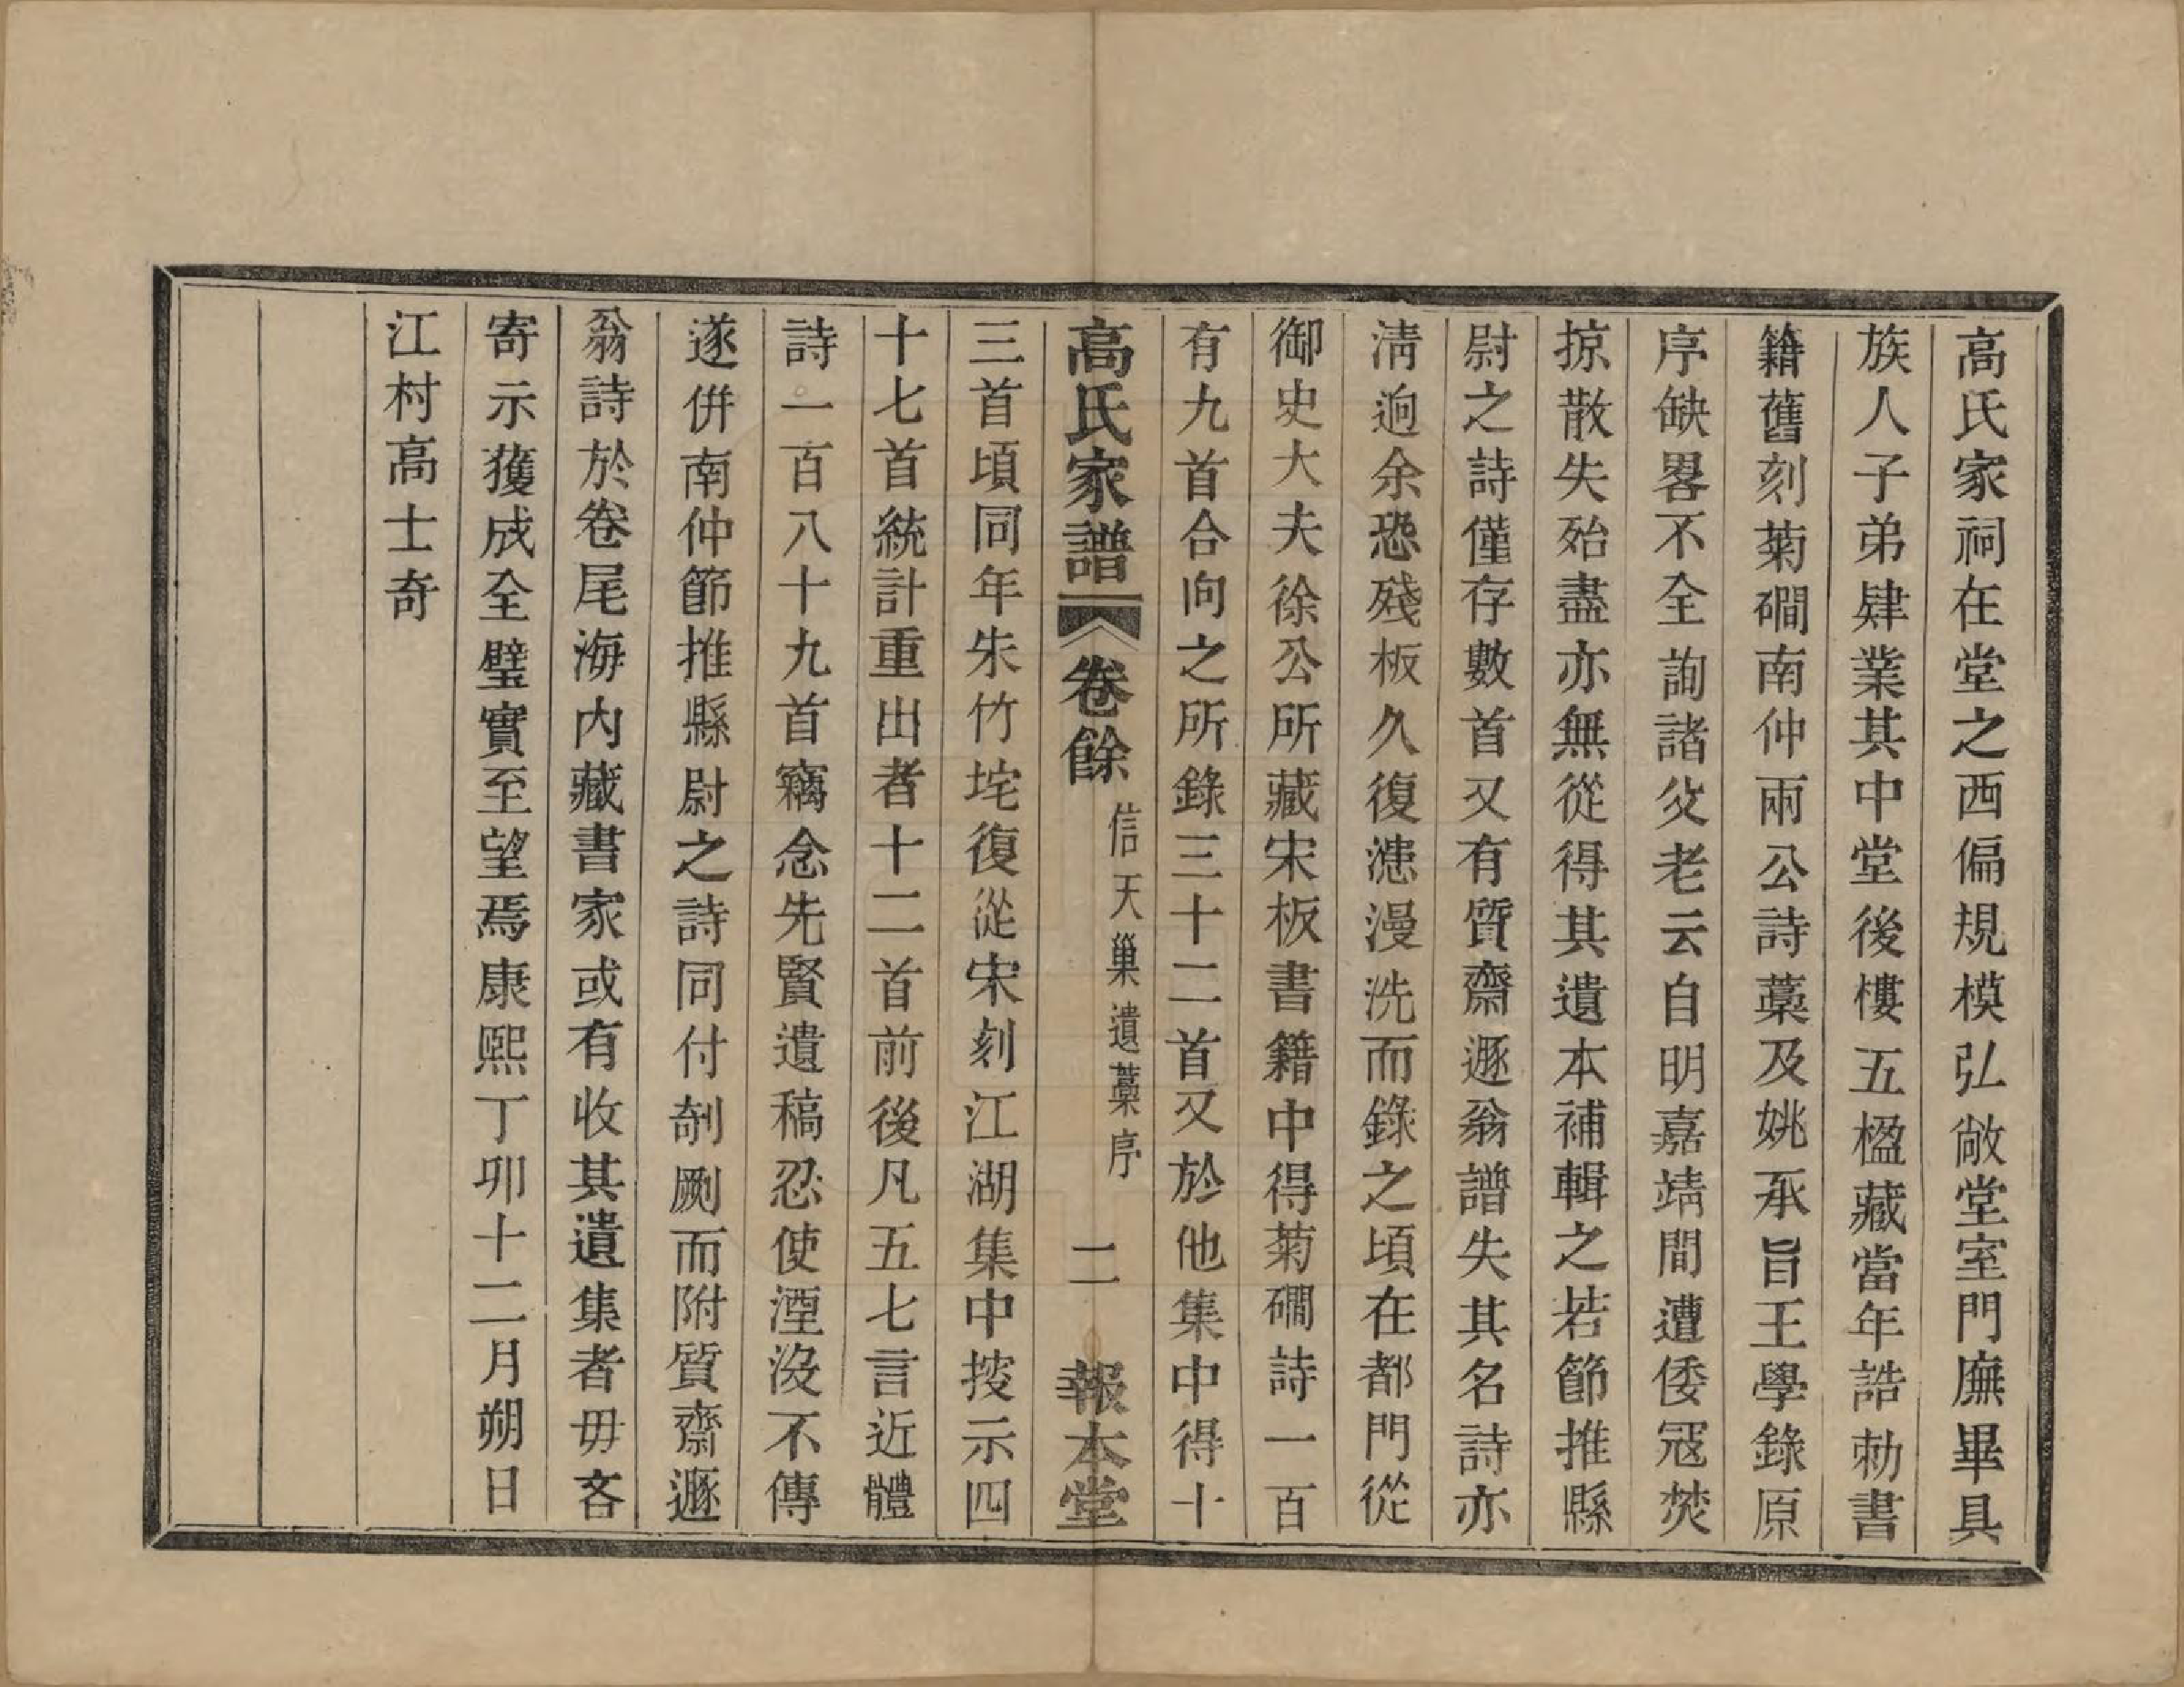 高氏家祠在堂之西偏規模弘敞堂室門廡畢具
族人子弟肄業其中堂後樓五楹藏當年誥勅書
籍舊刻菊磵南仲兩公詩藁及姚承旨王學錄原
序缺畧不全詢諸父老云自明嘉靖間遭倭冦焚
掠散失殆盡亦無從得其遺本補輯之若節推縣
尉之詩僅存數首又有質齋遯翁譜失其名詩亦
淸逈余恐殘板久復漶漫洗而錄之頃在都門從
御史大夫徐公所藏宋板書籍中得菊磵詩一百
有九首合向之所錄三十二首又於他集中得十
高氏家譜 卷餘 信天巢遺藁序 二 報本堂
三首頃同年朱竹垞復從宋刻江湖集中授示四
十七首統計重出者十二首前後凡五七言近體
詩一百八十九首竊念先賢遺稿忍使湮沒不傳
遂併南仲節推縣尉之詩同付剞劂而附質齋遯
翁詩於卷尾海內藏書家或有收其遺集者毋吝
寄示獲成全璧實至望焉康熙丁卯十二月朔日
江村高士奇